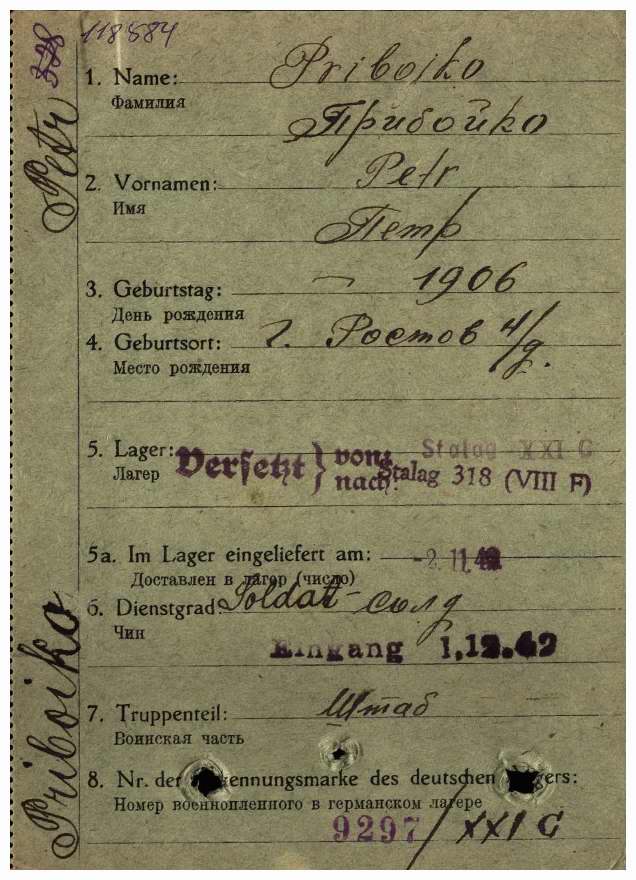 118884
Petr
1. Name: Priboiko
Фамилия
Прибойко
2. Vornamen: Petr
Имя
Петр
3. Geburtstag: — 1906
День рождения
4. Geburtsort: г. Ростов н/д.
Место рождения
5. Lager: Versetzt } von: Stalag XXI C
Лагер nach: Stalag 318 (VIII F)
5a. Im Lager eingeliefert am: -2.11.42
Доставлен в лагер (число)
6. Dienstgrad: Soldat - солд
Чин
Eingang 1.12.42
7. Truppenteil: Штаб
Воинская часть
8. Nr. der kennungsmarke des deutschen gers:
Номер военнопленного в германском лагере
9297/XXI C
Priboiko